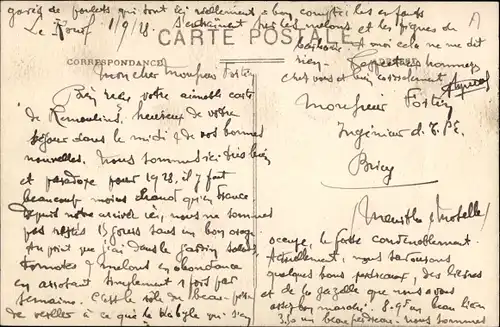 gavés de poulets qui sont ici réellement à bon compte; les enfants
Le Kouif 1/9/28 s'entraînent sur les melons et les figues de
CARTE POSTALE
Barbarie. A moi cela ne me dit
rien. Respectueux hommages
CORRESPONDANCE
chez vous et bien cordialement
Mon cher Monsieur Fortin
Bien reçu votre aimable carte
de Remoulins, heureux de votre
séjour dans le midi & de vos bonnes
nouvelles. Nous sommes ici très bien
et paradoxe pour 1928, il y fait
beaucoup moins chaud qu'en France
depuis notre arrivée ici, nous ne sommes
pas restés 15 jours sans un bon orage
au point que j'ai dans le jardin salades,
tomates & melons en abondance
en arrosant simplement 1 fois par
semaine. C'est le rôle du beau-père
de veiller à ce que le Kabyle qui s'en
Monsieur Fortin
Ingénieur d. T.P.E.
Briey
Meurthe & Moselle
occupe, le fasse convenablement.
Actuellement, nous savourons
quelques bons perdreaux, des lièvres
et de la gazelle que nous avons
assez bon marché. 8-9f un beau lièvre
3,50 un beau perdreau. Nous sommes